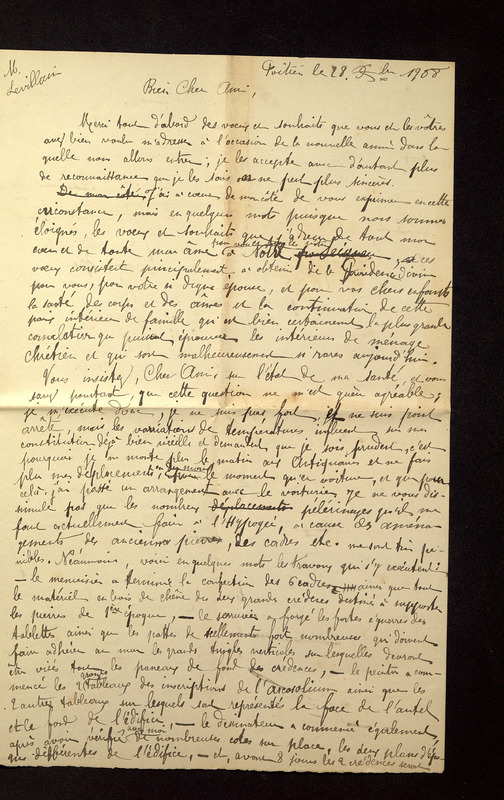 M. Levillain
Poitiers le 28 Xbre 1908
Bien Cher Ami,
Merci tout d'abord des vœux et souhaits que vous et les vôtres
avez bien voulu m'adresser à l'occasion de la nouvelle année dans la
quelle nous allons entrer ; je les accepte avec d'autant plus
de reconnaissance que je les sais on ne peut plus sincères.
De mon côté j'ai à cœur de mon côté de vous exprimer en cette
circonstance, mais en quelques mots puisque nous sommes
éloignés, les vœux et souhaits que j'adresse de tout mon
cœur et de toute mon âme à Notre Seigneur pour vous et ces
vœux consistent principalement à obtenir de la Providence divine
pour vous, pour votre si digne épouse, et pour vos chers enfants
la santé des corps et des âmes et la continuation de cette
paix intérieure de famille qui est bien certainement la plus grande
consolation que puissent éprouver les intérieurs de ménage
chrétien et qui sont malheureusement si rares aujourd'hui.
Vous insistez, Cher Ami, sur l'état de ma santé, et vous
savez pourtant, que cette question ne m'est guère agréable ;
je m'exécute donc, je ne suis pas fort, et ne suis point
arrêté, mais les variations de températures influent sur mes
constitution déjà bien vieille et demandent que je sois prudent, c'est
pourquoi je ne monte plus le matin aux Antiquaires et ne fais
plus mes déplacements, pour le moment qu'en voiture, et que pour
cela j'ai passé un arrangement avec le voiturier. Je ne vous dis-
simule pas que les nombreux déplacements pèlerinages qu'il me
faut actuellement faire à l'Hypogée, à cause des aména-
gements des anciennes pierres, des cadres etc. me sont très pé-
nibles. Néanmoins voici en quelques mots les travaux qui s'y exécutent :
– le menuisier a terminé la confection des 6 cadres ainsi que tout
le matériel en bois de chêne des deux grandes crédences destinées à supporter
les pierres de 1ère époque, – le serrurier a forgé les fortes équerres des
tablettes ainsi que les pattes de scellements fort nombreuses qui doivent
faire adhérer au mur les grandes tringles verticales sur lesquelles devront
être vissés tous les panneaux de fond des crédences, – le peintre a com-
mencé les 2 grands tableaux des inscriptions de l'arcosolium ainsi que les
2 autres tableaux sur lesquels sont représentés la face de l'autel
et le fond de l'édifice, – le dessinateur a commencé également,
après avoir vérifié avec moi de nombreuses cotes sur place, les deux plans d'épo-
ques différentes de l'édifice, – et, avant 8 jours les 2 crédences seront